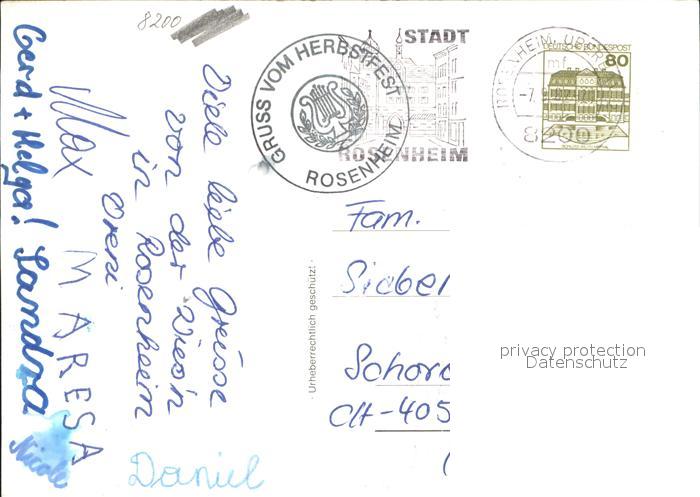 8200
Viele liebe Grüsse
von der Wies'n
in Rosenheim
Vreni
Max MARESA
Gerd + Helga! Sandra
Nicole
Daniel
GRUSS VOM HERBSTFEST
ROSENHEIM
STADT
ROSENHEIM
ROSENHEIM,
8200
DEUTSCHE BUNDESPOST
80
mf
Fam.
Sieber
Schore
CH-405
· Urheberrechtlich geschützt! ·
privacy protection
Datenschutz